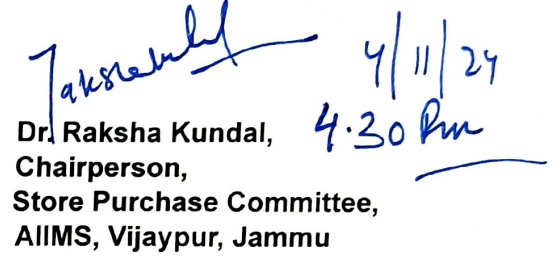 4/11/24
4.30 Pm
Dr. Raksha Kundal,
Chairperson,
Store Purchase Committee,
AIIMS, Vijaypur, Jammu